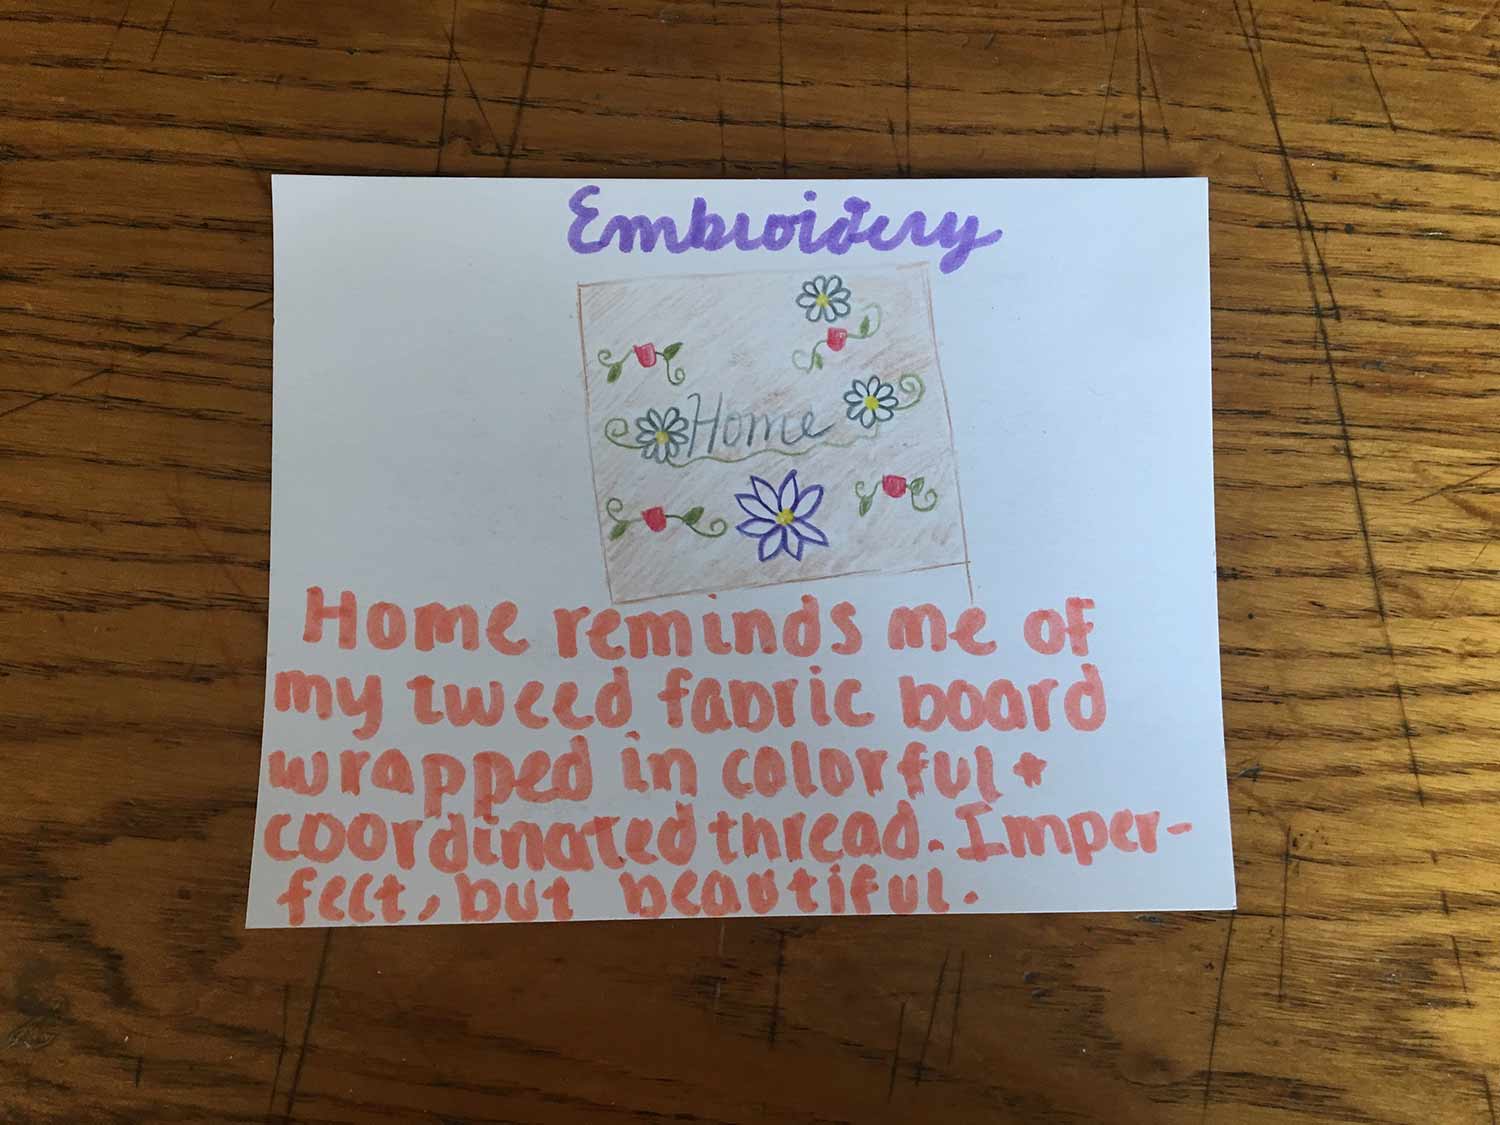 Embroidery
Home
Home reminds me of
my tweed fabric board
wrapped in colorful +
coordinated thread. Imper-
fect, but beautiful.